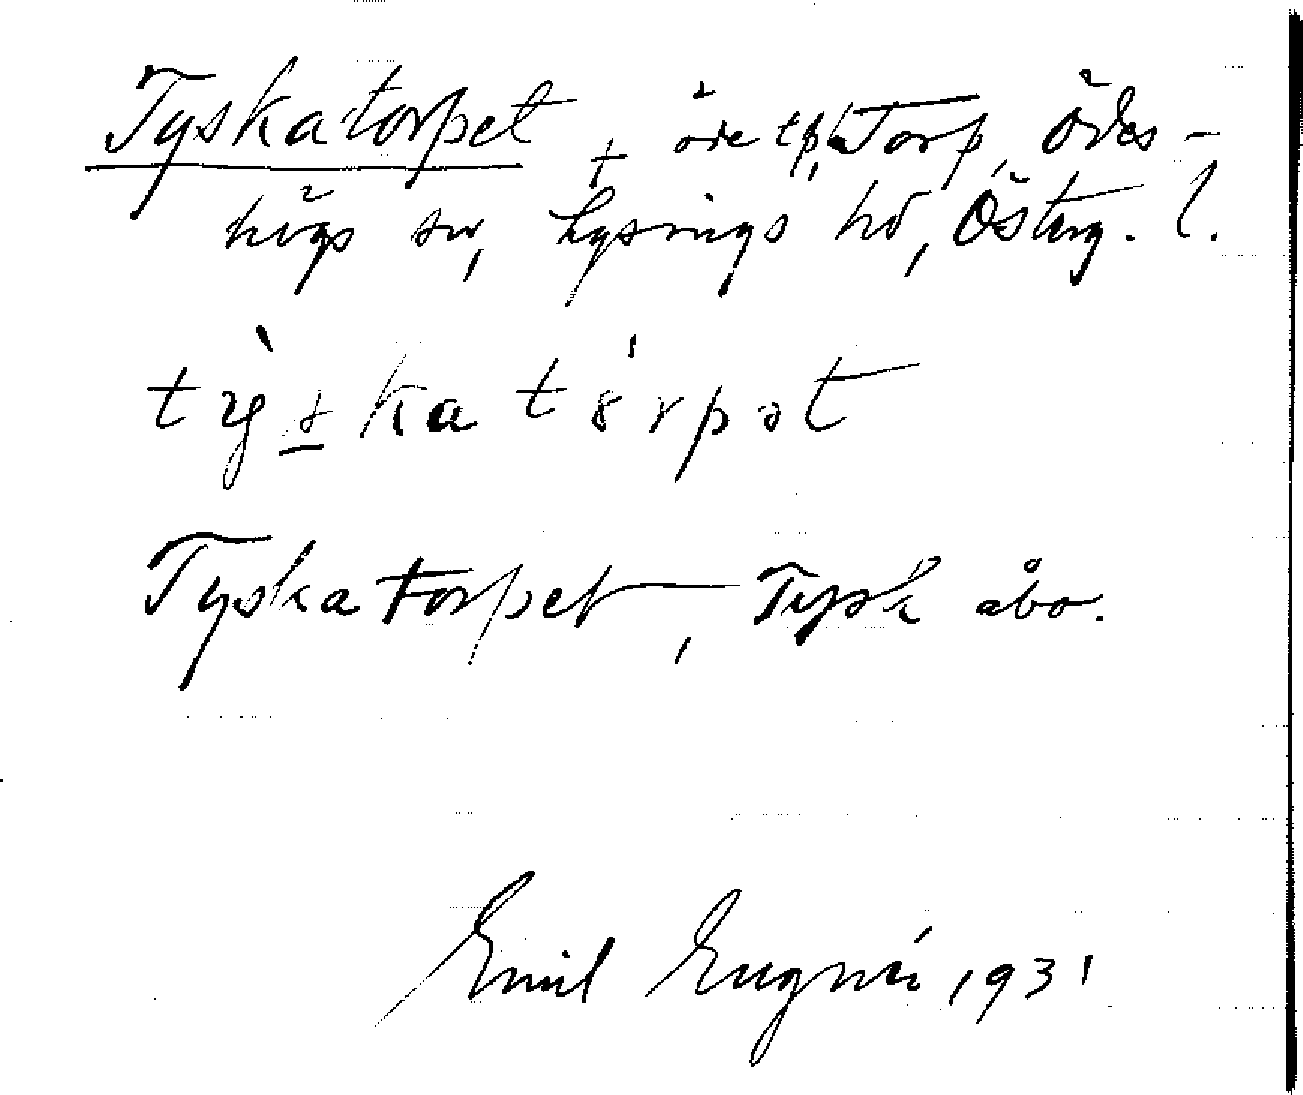 Tyskatorpet + öde tp, Torp, Ödes-
högs sn, Lysings hd, Österg. l.
tỳskatórpət
Tyskatorpet, Tysk åbo.
Emil 1931